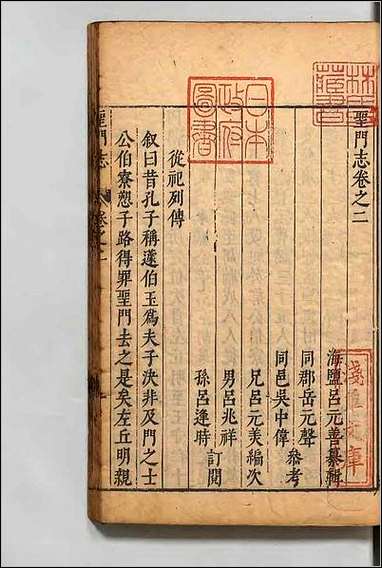 聖門志卷之二
海鹽呂元善纂輯
同郡岳元聲
同邑吳中偉
參考
兄呂元美編次
男呂兆祥
孫呂逢時
訂閱
從祀列傳
叙曰昔孔子稱蘧伯玉爲夫子決非及門之士
公伯寮愬子路得罪聖門去之是矣左丘明親
聖門志
卷之二
日本
政府
圖書